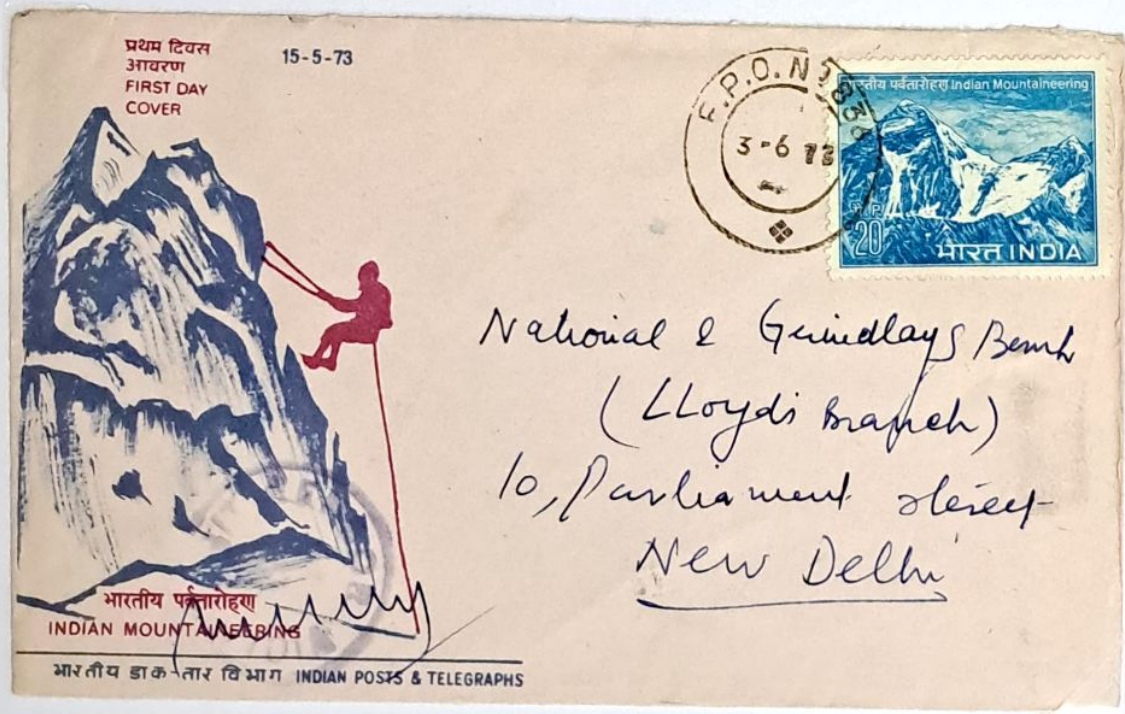 प्रथम दिवस
आवरण
FIRST DAY
COVER
15-5-73
F.P.O. No
3-6 73
भारतीय पर्वतारोहण Indian Mountaineering
20
भारत INDIA
National & Grindlays Bank
(Lloyds Branch)
10, Parliament street
New Delhi
भारतीय पर्वतारोहण
INDIAN MOUNTAINEERING
भारतीय डाक-तार विभाग INDIAN POSTS & TELEGRAPHS